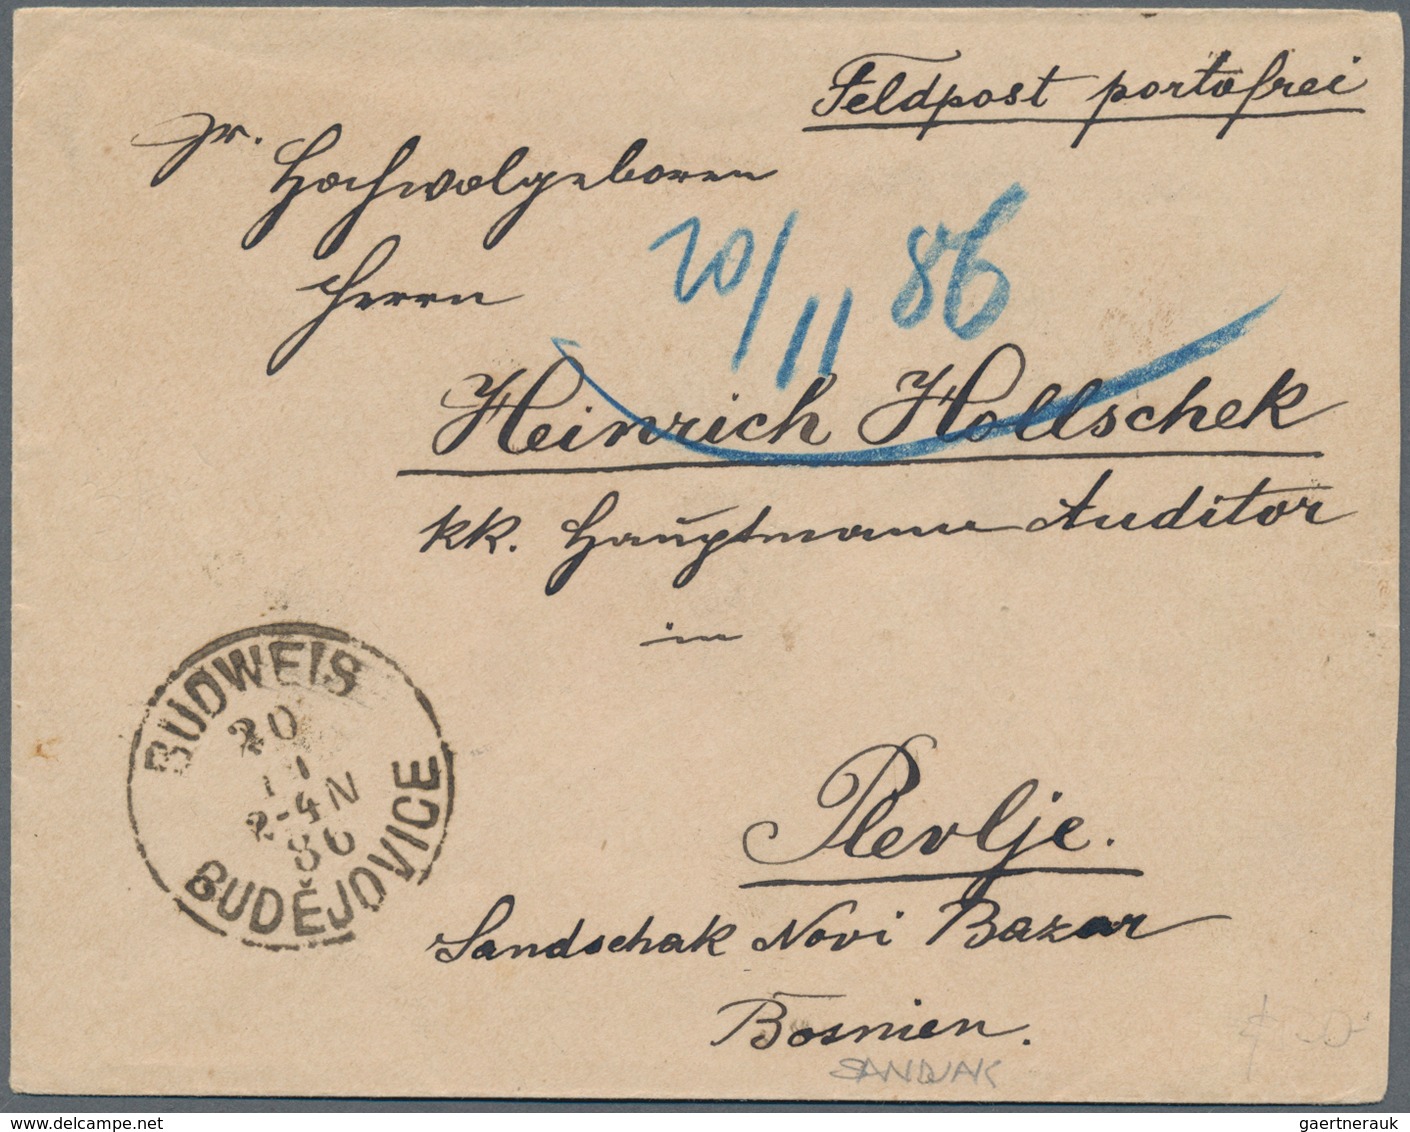 Feldpost portofrei
Sr.
Hochwolgeboren
Herrn
20/11 86
Heinrich Hollschek
kk. Hauptmann Auditor
in
BUDWEIS
20
11
2-4N
86
BUDĚJOVICE
Plevlje.
Sandschak Novi Bazar
Bosnien.
SANDJAK
gaertnerauk